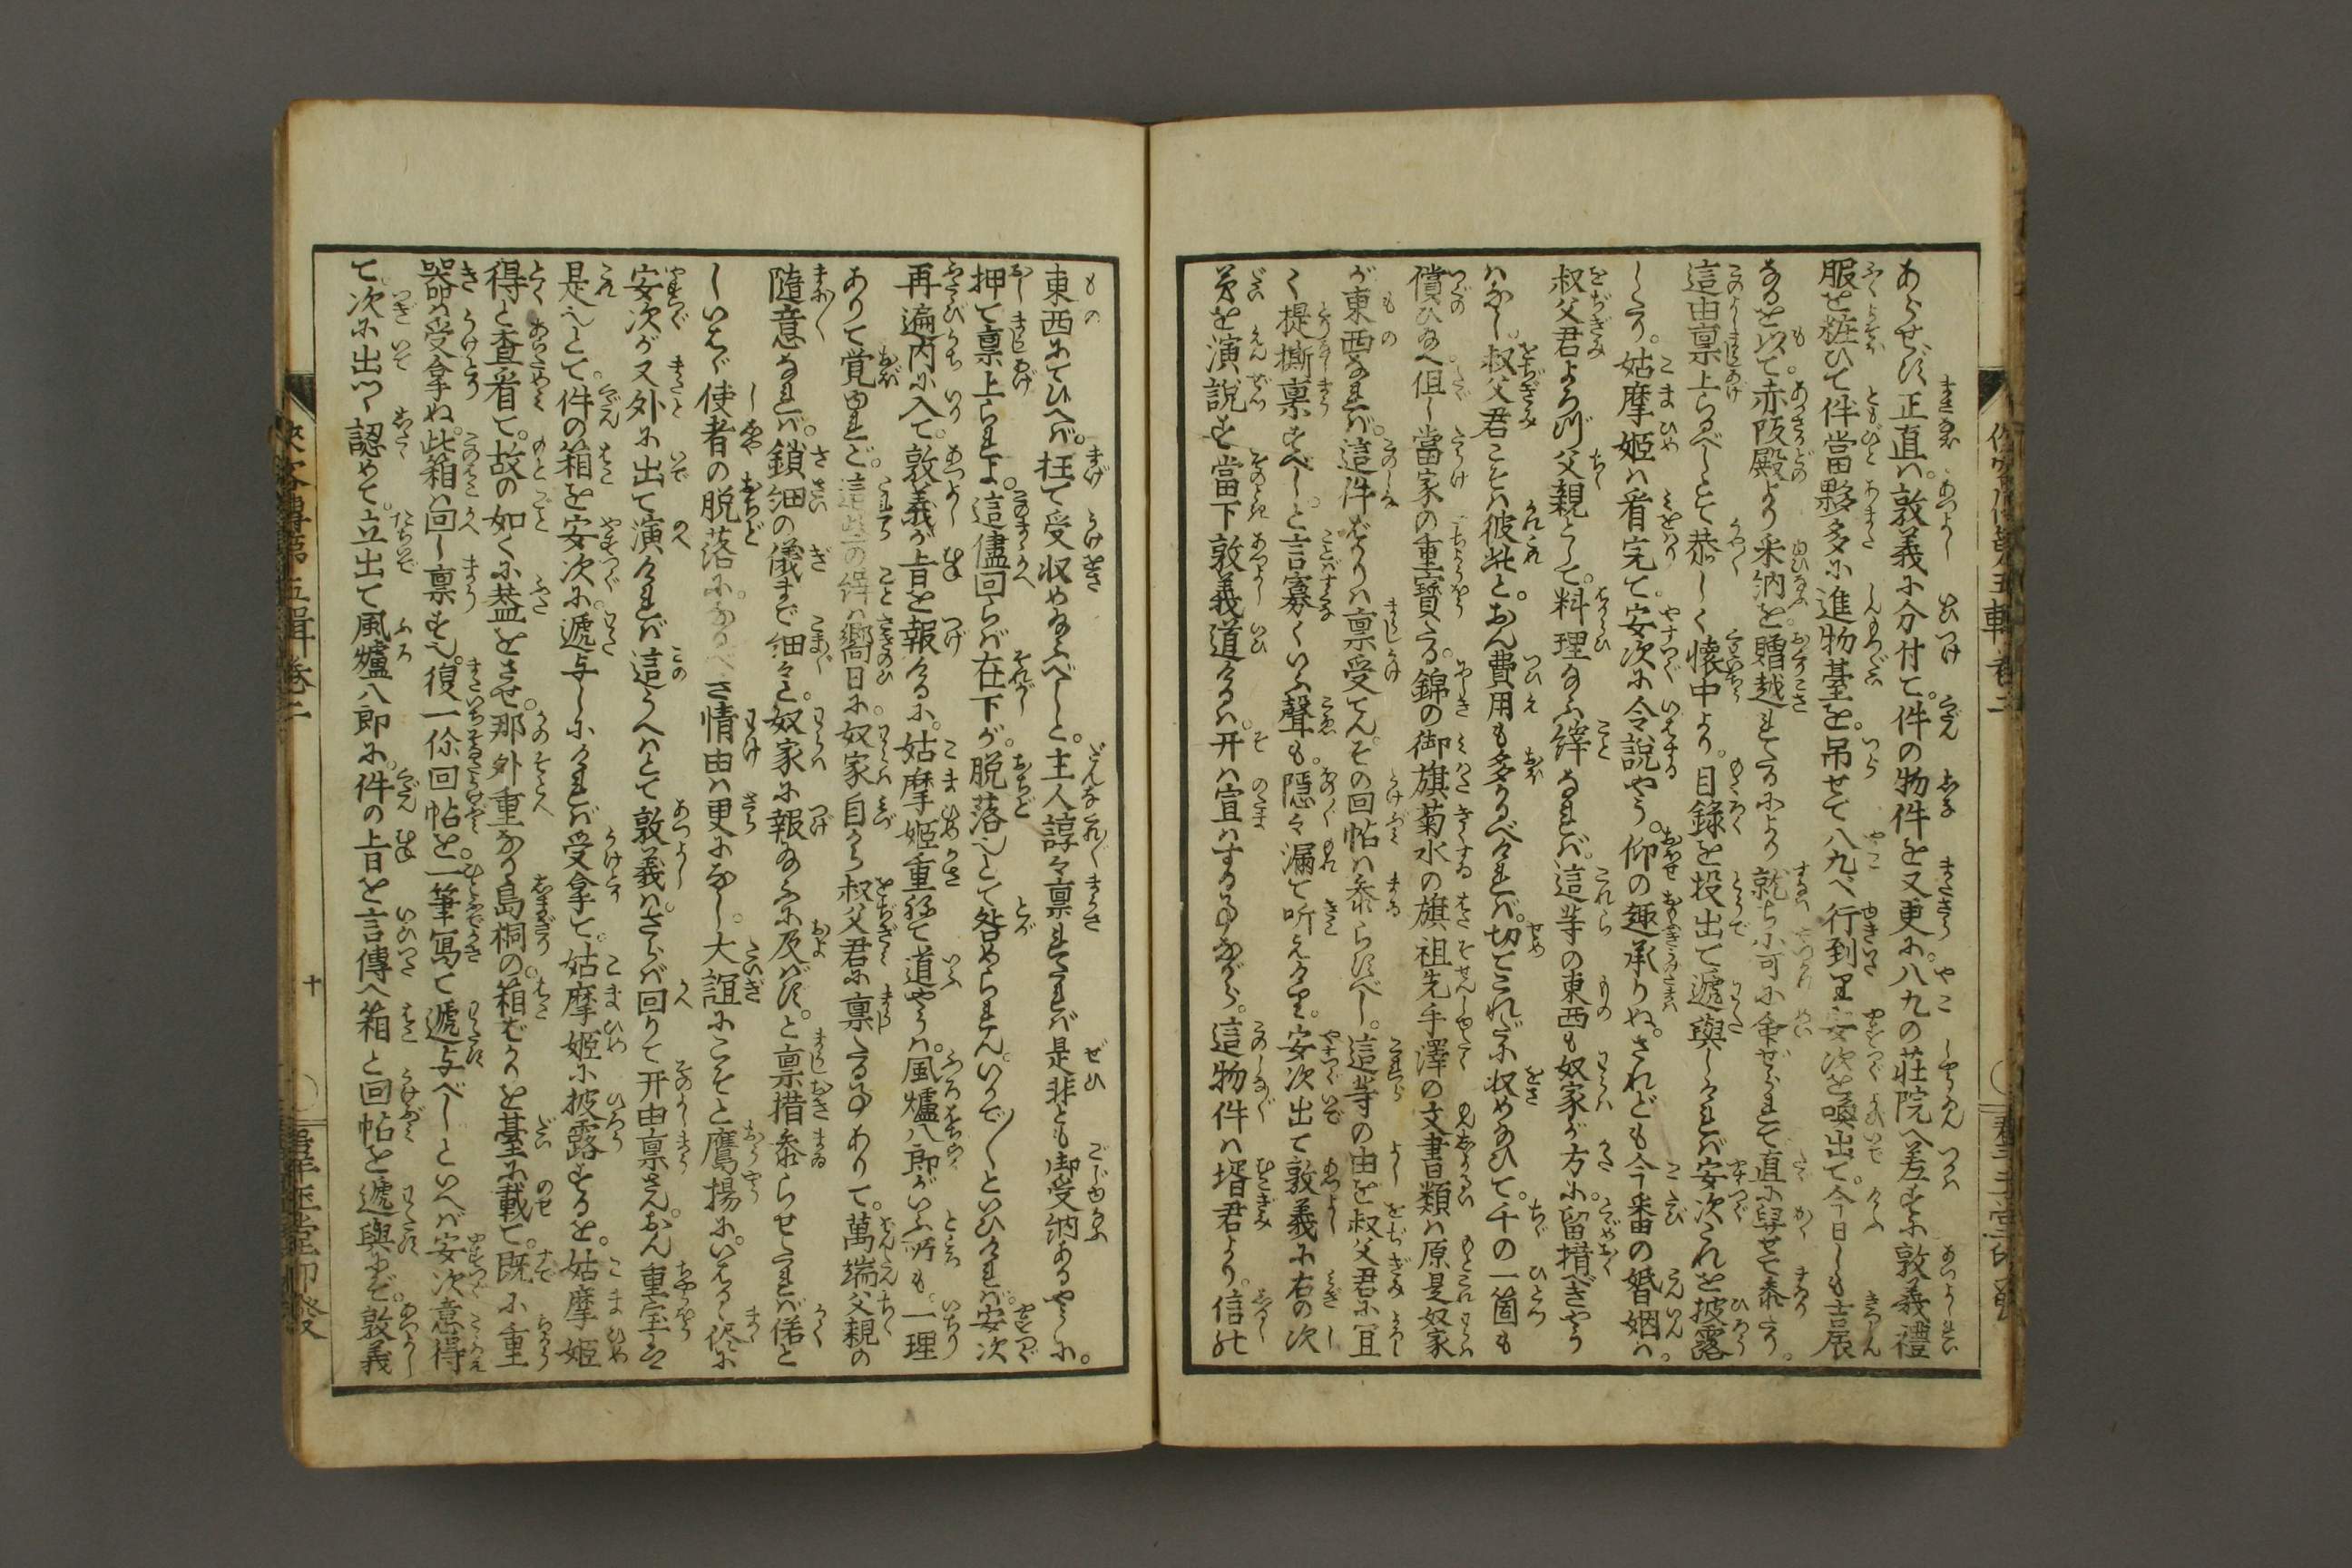 あらせず。正直は。敦義に分付て。件の物件を又更に。八九の荘院へ差すに敦義禮
服を粧ひて伴當夥多に進物臺を。吊せて八九へ行到り安次を喚出て。今日しも吉辰
なるを以て。赤阪殿より采納を。贈越れたるにより就ち小可に命ぜられて直に舁せて参たり。
這由稟上らるべしとて恭しく懐中より。目録を投出て遞與しければ安次これを披露
したり。姑摩姫は看完て。安次に令説やう。仰の趣承りぬ。されども今番の婚姻は。
叔父君よろづ父親として。料理なふ縡なれば。這等の東西も奴家が方に。留措べきやう
はなし。叔父君こそは彼此と。おん費用も多かるべければ。切てこれだに収め給ひて。千の一箇も
償ひ給へ。但し當家の重寶たる。錦の御旗菊水の旗祖先手澤の文書類は原是奴家
が東西なれば。這件ばかりは稟受てん。その回帖は参らすべし。這等の由を叔父君に宜
く提撕稟すべし。と言寡くいふ聲も。隠々漏て听えけり。安次出て敦義に右の次
第を演説す當下敦義道けるは。开は宣はする事ながら。這物件は壻君より。信の
東西にてひへば。枉て受収め給ふべしと。主人諄々稟されたれば是非とも御受納あるやうに。
押て稟上られよ。這儘回らば在下が。脱落へとて咎められん。いかで〳〵といひければ。安次
再遍内に入て。敦義が旨を報けるに。姑摩姫重ねて道やうは。風爐八郎がいふ所も。一理
ありて覚ゆれど。這些の縡は嚮日に奴家自から叔父君に稟たる事ありて。萬端父親の
隨意なれば。鎖細の儀まで細々と。奴家に報給ふに及ばず。と稟措参らせたれば偌と
しいはゞ使者の脱落に。なるべき情由は更になし。大誼にこそと鷹揚に。いはるゝ侭に
安次が又外に出て演ければ這うへはとて敦義は。さらば回りて开由稟さん。おん重宝は
是へとて。件の箱を安次に。遞与しにければ受拿て。姑摩姫に披露するを。姑摩姫
得と査看て。故の如くに蓋をさせ。那外重なる島桐の。箱ばかりを臺に載て。既に重
器は受拿ぬ。此箱は回し稟す也。復一條回帖を。一筆寫て遞与べしといへば安次意得
て。次に出つゝ認めて。立出て風爐八郎に。件の旨を言傳へ箱と回帖を遞與にぞ。敦義
侠客傳第五輯 巻二
十